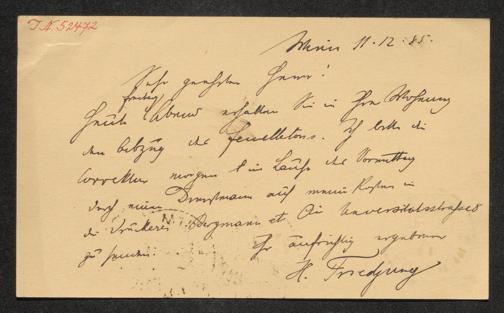 J.N. 52472
Wien 11.12.85.
Sehr geehrter Herr!
freitag
Heute Abend erhalten Sie in Ihre Wohnung
den Abzug des Feuilletons. Ich bitte die
Correktur morgen im Laufe des Vormittag
durch einen Dienstmann auf meine Kosten in
die Druckerei Bergmann et Co Universitätsstraße 8
zu senden.
Ihr aufrichtig ergebener
H. Friedjung